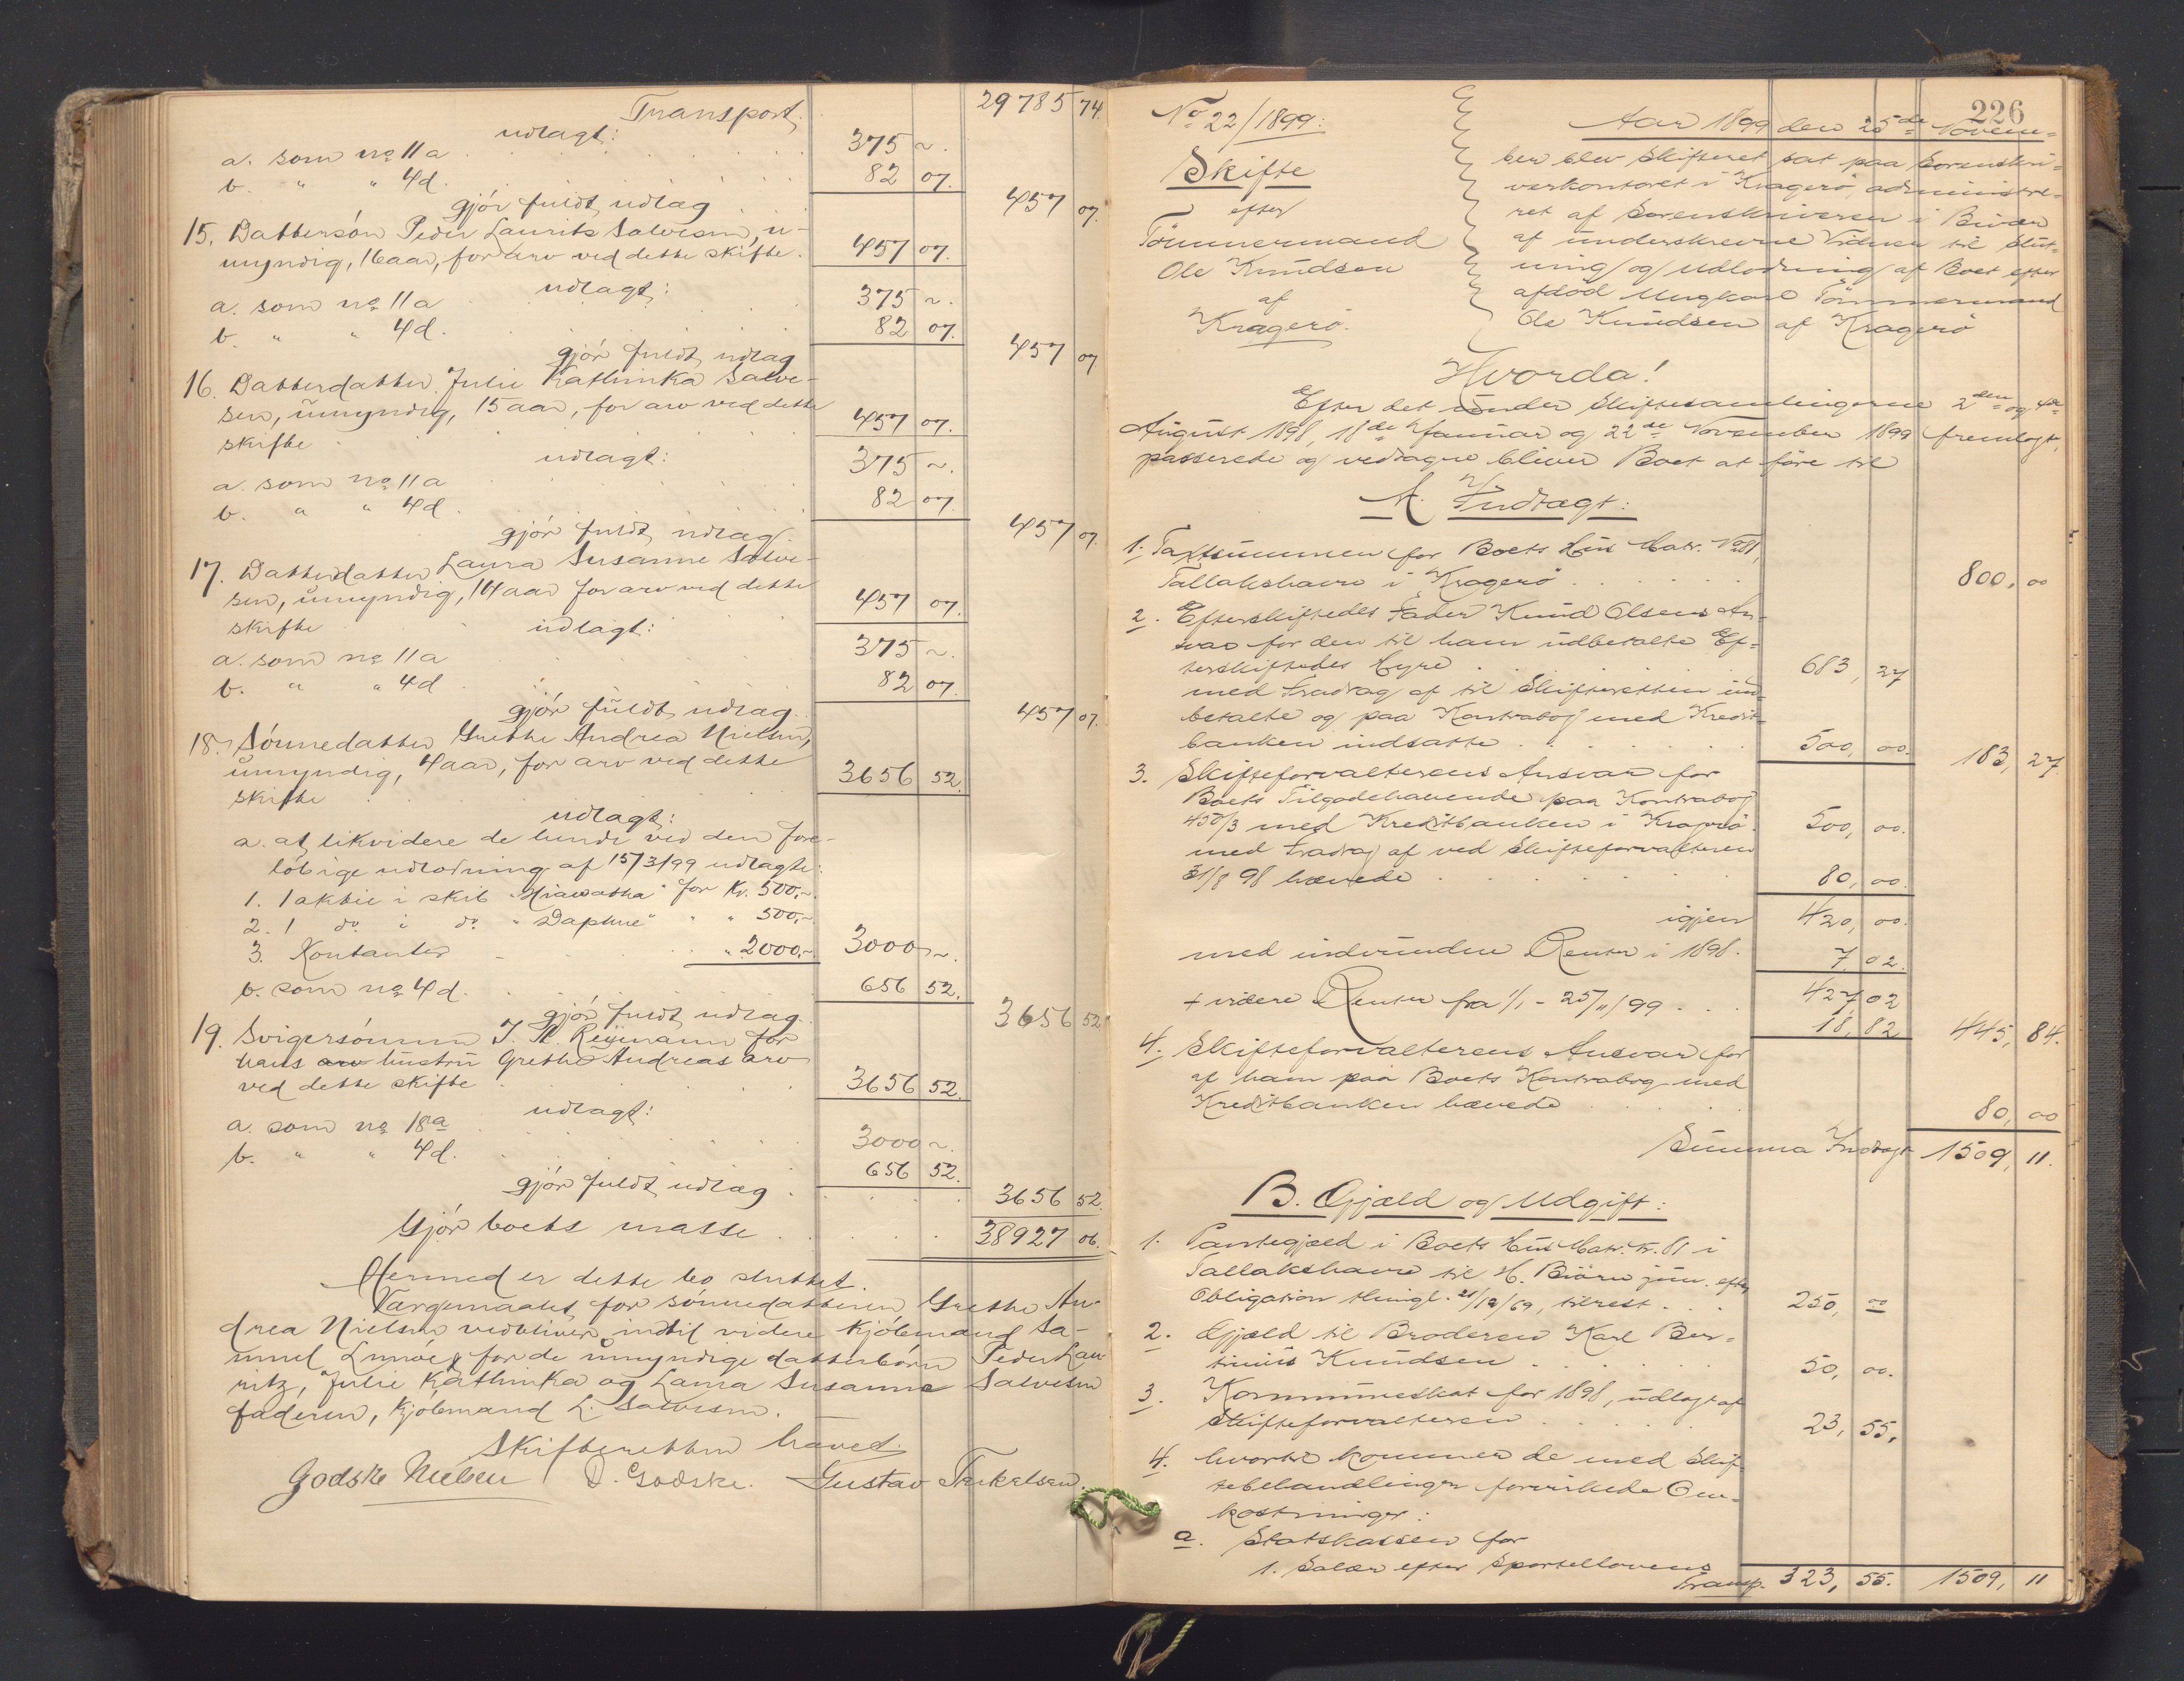 Transport 29785 74.
udlagt:
a. som no 11a . . . 375 ~.
b. " " 4d. . . . 82 07.
gjör fuldt udlag . . 457 07.
15. Dattersön Peder Laurits Salvesen, u-
myndig, 16 aar, for arv ved dette skifte. 457 07.
udlagt:
a. som no 11a . . . 375 ~.
b. " " 4d. . . . 82 07.
gjör fuldt udlag 457 07
16. Datterdatter Julie Kathinka Salve-
sen, umyndig, 15 aar, for arv ved dette
skifte . . . 457 07.
udlagt:
a. som no 11a . . . 375 ~.
b. " " 4d . . . 82 07.
gjör fuldt udlag. 457 07.
17. Datterdatter Laura Susanne Salve-
sen, umyndig, 14 aar for arv ved dette
skifte . . . 457 07.
udlagt:
a. som no 11a . . . 375 ~.
b. " " 4d . . . 82 07.
gjör fuldt udlag 457 07.
18. Sönnedatter Grethe Andrea Nielsen,
umyndig, 4 aar, for arv ved dette
skifte . . . 3656 52.
udlagt:
a. at likvidere de hende ved den fore-
löbige udlodning af 15/3/99 udlagte:
1. 1 aktie i skib "Hiawatha" for Kr. 500,~
2. 1 do i do "Daphne" " " 500,~
3. Kontanter . . " 2000,~ 3000 ~.
b. som no 4d. . . . 656 52.
gjör fuldt udlag. 3656 52
19. Svigersönnen J. A. Reimann for
hans arv hustru Grethe Andreas arv
ved dette skifte . . . 3656 52.
udlagt:
a. som no 18a . . . 3000 ~.
b. " " 4d. . . . 656 52.
gjör fuldt udlag . . . 3656 52.
Gjör boets masse . . . 38927 06.
Hermed er dette bo sluttet.
Værgemaalet for sönnedatteren Grethe An-
drea Nielsen vedbliver indtil videre kjöbmand Sa-
muel for de umyndige datterbörn Peder Lau-
ritz, Julie Kathinka og Laura Susanne Salvesen
faderen, kjöbmand L. Salvesen.
Skifteretten hævet.
Godske Nielsen D. Godske. Gustav Terkelsen.
226
No 22/1899:
Skifte
efter
Tömmermand
Ole Knudsen
af
Kragerö.
Aar 1899 den 25de Novem-
ber blev Skifteret sat paa Sorenskri-
verkontoret i Kragerö, administre-
ret af Sorenskriveren i Bivær
af underskrevne Vidner til Slut-
ning og Udlodning af Boet efter
afdöd Ungkarl Tömmermand
Ole Knudsen af Kragerö
Hvorda!
Efter det under Skiftesamlingerne 2den og 4de
August 1898, 18de Januar og 22de November 1899 fremlagt,
passerede og vedtagne bliver Boet at före til
A. Indtægt:
1. Taxtsummen for Boets Hus Matr. No 81,
Tallakshavn i Kragerö . . . 800, 00
2. Efterskiftedes Fader Knud Olsens An-
svar for den til ham udbetalte Ef-
terskiftedes Hyre . . . 683, 27
med Fradrag af til Skifteretten ind-
betalte og paa Kontrabog med Kredit-
banken indsatte . . . 500, 00. 183, 27
3. Skifteforvalterens Ansvar for
Boets Tilgodehavende paa Kontrabog
450/3 med Kreditbanken i Kragerö. 500, 00.
med Fradrag af ved Skifteforvalteren
31/8 98 hævede . . . 80, 00.
igjen 420, 00.
med indvundne Renter i 1898. 7, 02.
427, 02
+ videre Renter fra 1/1 - 25/11/99 . . . 18, 82 445, 84.
4. Skifteforvalterens Ansvar for
af ham paa Boets Kontrabog med
Kreditbanken hævede . . . 80, 00
Summa Indtægt 1509, 11.
B. Gjæld og Udgift:
1. Pantegjæld i Boets Hus Matr. Nr. 81 i
Tallakshavn til H. Biörn jun. efter
Obligation thingl. 21/12/69, tilrest . . . 250, 00
2. Gjæld til Broderen Karl Ber-
tinius Knudsen . . . 50, 00.
3. Kommuneskat for 1898, udlagt af
Skifteforvalteren . . . 23, 55,
4. hvortil kommer de med Skif-
tebehandlingen forvirkede Om-
kostninger:
a. Statskassen for
1. Salær efter Sportellovens
Transp. 323, 55. 1509, 11